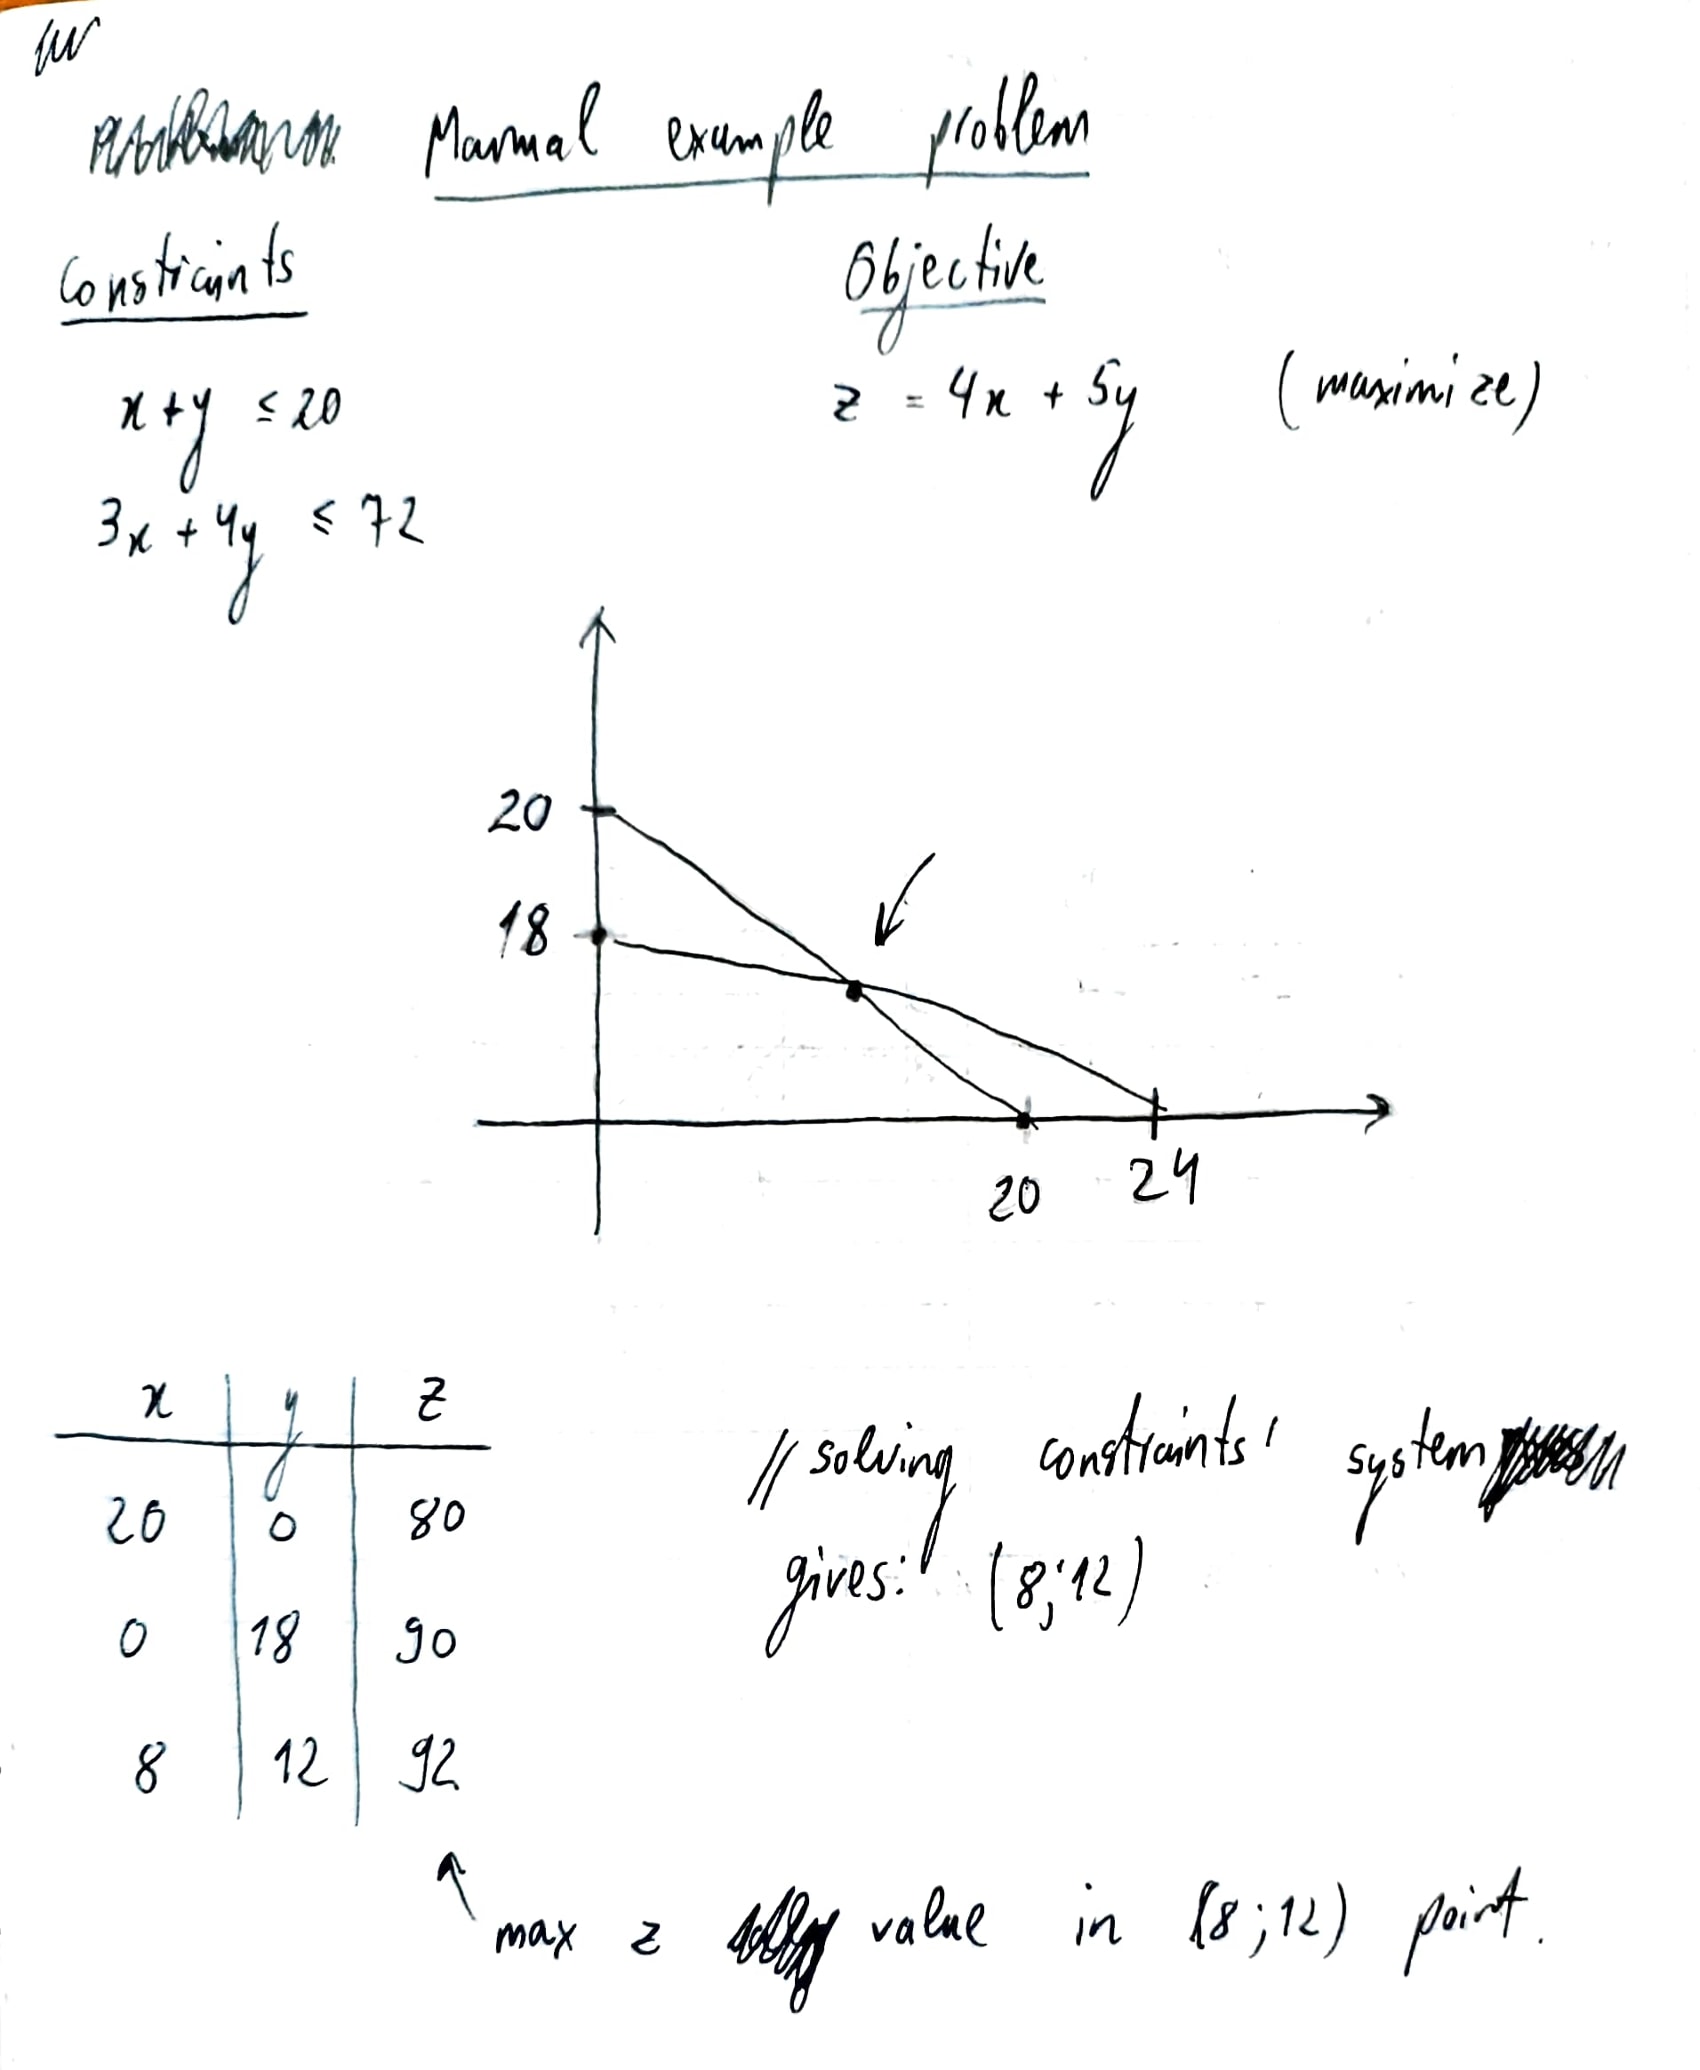 Manual example problem
Constraints Objective
x+y ≤ 20 z = 4x + 5y (maximize)
3x + 4y ≤ 72
20
18
20 24
x y z
20 0 80
0 18 90
8 12 92
// solving constraints' system
gives: (8;12)
max z value in (8;12) point.